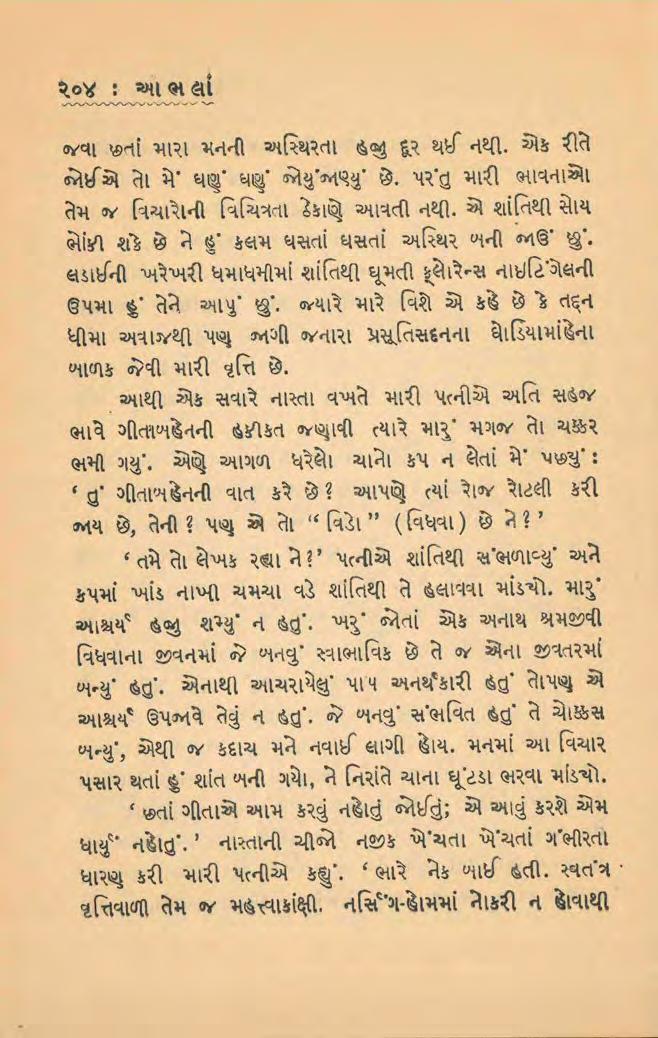 ૨૦૪ : આ ભ લાં
જવા છતાં મારા મનની અસ્થિરતા હજુ દૂર થઈ નથી. એક રીતે
જોઈએ તો મેં ઘણું ઘણું જોયુંજાણ્યું છે. પરંતુ મારી ભાવનાઓ
તેમ જ વિચારોની વિચિત્રતા ઠેકાણે આવતી નથી. એ શાંતિથી સોય
ભોંકી શકે છે ને હું કલમ ઘસતાં ઘસતાં અસ્થિર બની જાઉં છું.
લડાઈની ખરેખરી ધમાધમીમાં શાંતિથી ઘૂમતી ફ્લોરેન્સ નાઇટિંગેલની
ઉપમા હું તેને આપું છું. જ્યારે મારે વિશે એ કહે છે કે તદ્દન
ધીમા અવાજથી પણ જાગી જનારા પ્રસૂતિસદનના ઘોડિયામાંહેના
બાળક જેવી મારી વૃત્તિ છે.
આથી એક સવારે નાસ્તા વખતે મારી પત્નીએ અતિ સહજ
ભાવે ગીતાબહેનની હકીકત જણાવી ત્યારે મારું મગજ તો ચક્કર
ભમી ગયું. એણે આગળ ધરેલો ચાનો કપ ન લેતાં મેં પછ્યું :
‘ તું ગીતાબહેનની વાત કરે છે? આપણે ત્યાં રોજ રોટલી કરી
જાય છે, તેની ? પણ એ તો “ વિડો ” ( વિધવા ) છે ને ? ’
‘ તમે તો લેખક રહ્યા ને ?’ પત્નીએ શાંતિથી સંભળાવ્યું અને
કપમાં ખાંડ નાખી ચમચા વડે શાંતિથી તે હલાવવા માંડ્યો. મારું
આશ્ચર્ય હજુ શમ્યું ન હતું. ખરું જોતાં એક અનાથ શ્રમજીવી
વિધવાના જીવનમાં જે બનવું સ્વાભાવિક છે તે જ એના જીવતરમાં
બન્યું હતું. એનાથી આચરાયેલું પાપ અનર્થકારી હતું તોપણ એ
આશ્ચર્ય ઉપજાવે તેવું ન હતું. જે બનવું સંભવિત હતું તે ચોક્કસ
બન્યું, એથી જ કદાચ મને નવાઈ લાગી હોય. મનમાં આ વિચાર
પસાર થતાં હું શાંત બની ગયો, ને નિરાંતે ચાના ઘૂંટડા ભરવા માંડ્યો.
‘ છતાં ગીતાએ આમ કરવું નહોતું જોઈતું; એ આવું કરશે એમ
ધાર્યું નહોતું. ’ નાસ્તાની ચીજો નજીક ખેંચતા ખેંચતાં ગંભીરતા
ધારણ કરી મારી પત્નીએ કહ્યું. ‘ ભારે નેક બાઈ હતી. સ્વતંત્ર
વૃત્તિવાળી તેમ જ મહત્ત્વાકાંક્ષી. નર્સિંગ-હોમમાં નોકરી ન હોવાથી